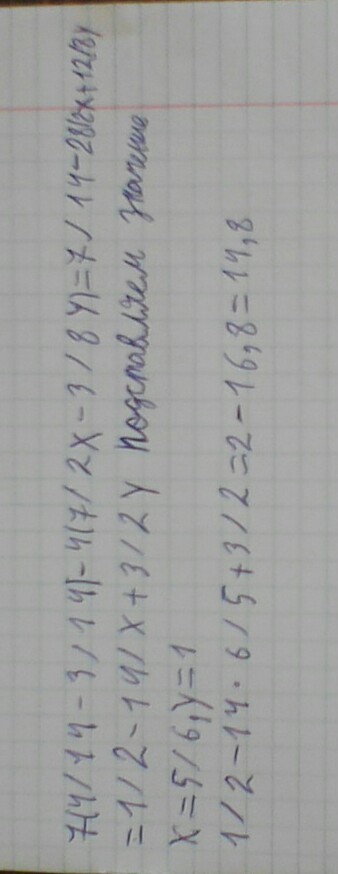 7(4/14-3/14)-4(7/2x-3/8y)=7/14-28/2x+12/8y
=1/2-14/x+3/2y Подставляем значение
x=5/6,y=1
1/2-14·6/5+3/2=2-16,8=14,8